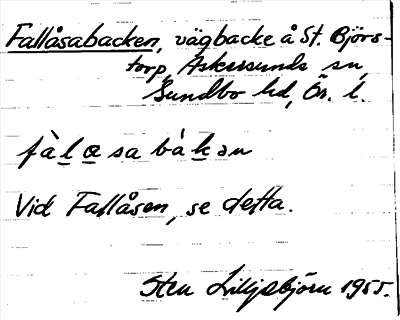 Fallåsabacken, vägbacke å St. Björs-
torp, Askersunds sn,
Sundbo hd, Ör. l.
fàlasabàkən
Vid Fallåsen, se detta.
Sten Liljesbjörn 1955.